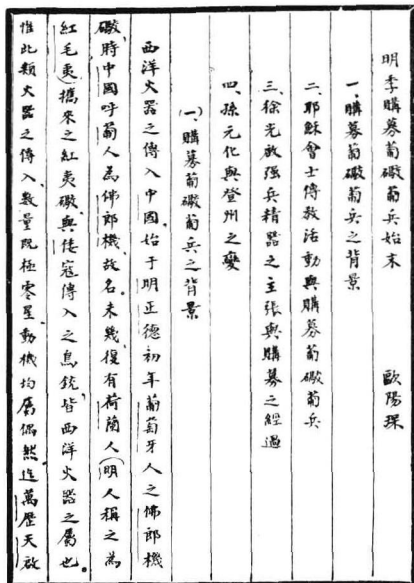 明季購募葡礮葡兵始末 歐陽琛
一、購募葡礮葡兵之背景
二、耶穌會士傳教活動與購募葡礮葡兵
三、徐光啟强兵精器之主張與購募之經過
四、孫元化與登州之變
(一)、購募葡礮葡兵之背景
西洋火器之傳入中國、始于明正德初年葡萄牙人之佛郎機
礮、時中國呼葡人為佛郎機、故名。未幾、復有荷蘭人(明人稱之為
紅毛夷)攜來之紅夷礮、與倭寇傳入之鳥銃、皆西洋火器之屬也。
惟此類火器之傳入、數量既極零星、動機均屬偶然、迨萬歷天啟